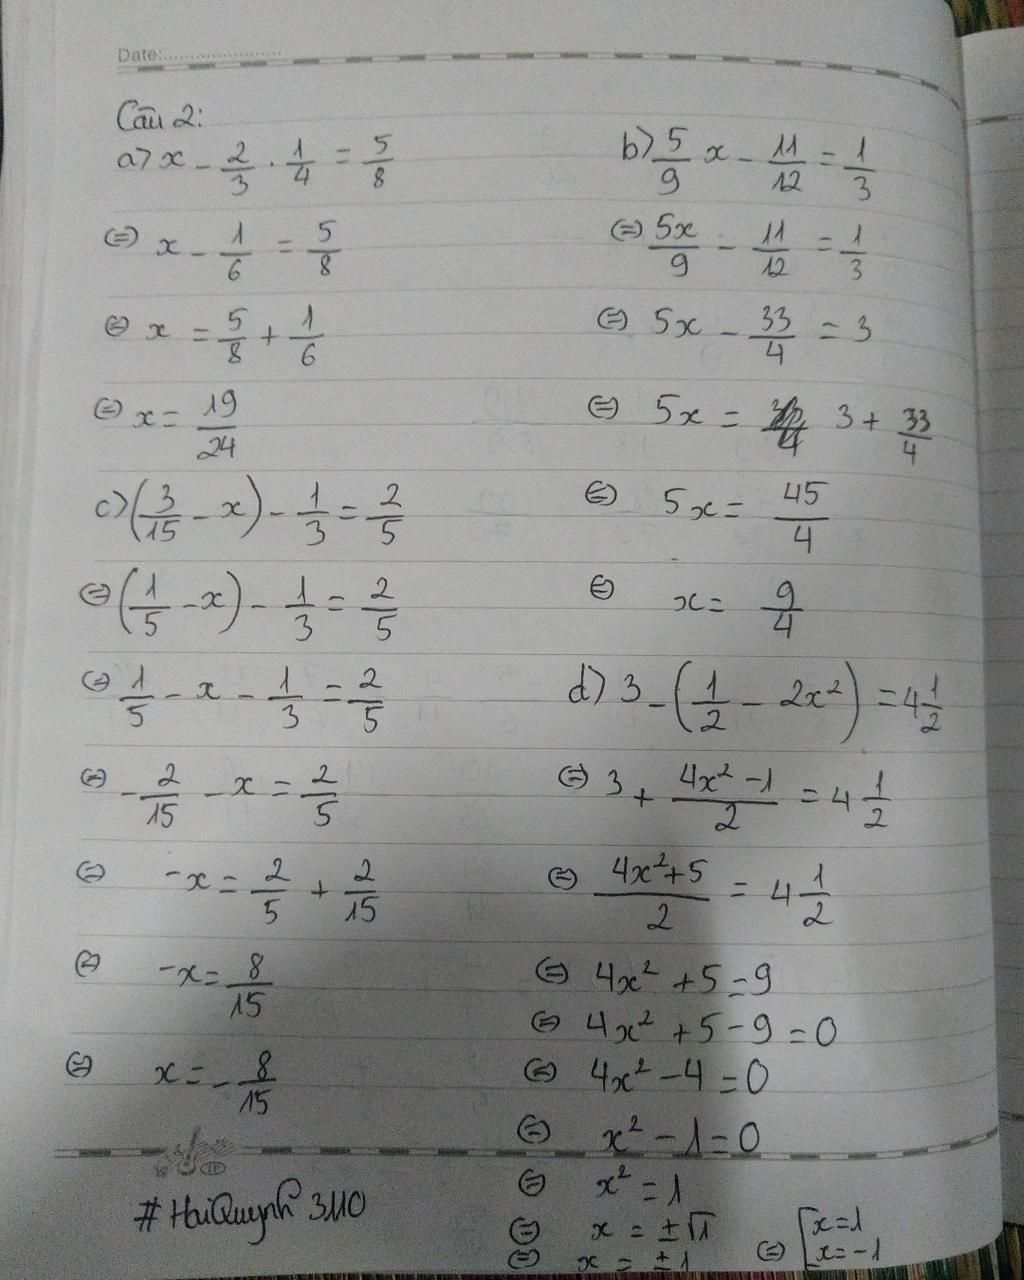 Date:
Câu 2:
a) x - 2/3 . 1/4 = 5/8
(=) x - 1/6 = 5/8
(=) x = 5/8 + 1/6
(=) x = 19/24
c) (3/15 - x) - 1/3 = 2/5
(=) (1/5 - x) - 1/3 = 2/5
(=) 1/5 - x - 1/3 = 2/5
(=) -2/15 - x = 2/5
(=) -x = 2/5 + 2/15
(=) -x = 8/15
(=) x = -8/15
# HaiQuynh 3110
b) 5/9 x - 11/12 = 1/3
(=) 5x/9 - 11/12 = 1/3
(=) 5x - 33/4 = 3
(=) 5x = 3 + 33/4
(=) 5x = 45/4
(=) x = 9/4
d) 3 - (1/2 - 2x²) = 4 1/2
(=) 3 + (4x² - 1)/2 = 4 1/2
(=) (4x² + 5)/2 = 4 1/2
(=) 4x² + 5 = 9
(=) 4x² + 5 - 9 = 0
(=) 4x² - 4 = 0
(=) x² - 1 = 0
(=) x² = 1
(=) x = ±√1
(=) x = ±1 (=) [x = 1
x = -1